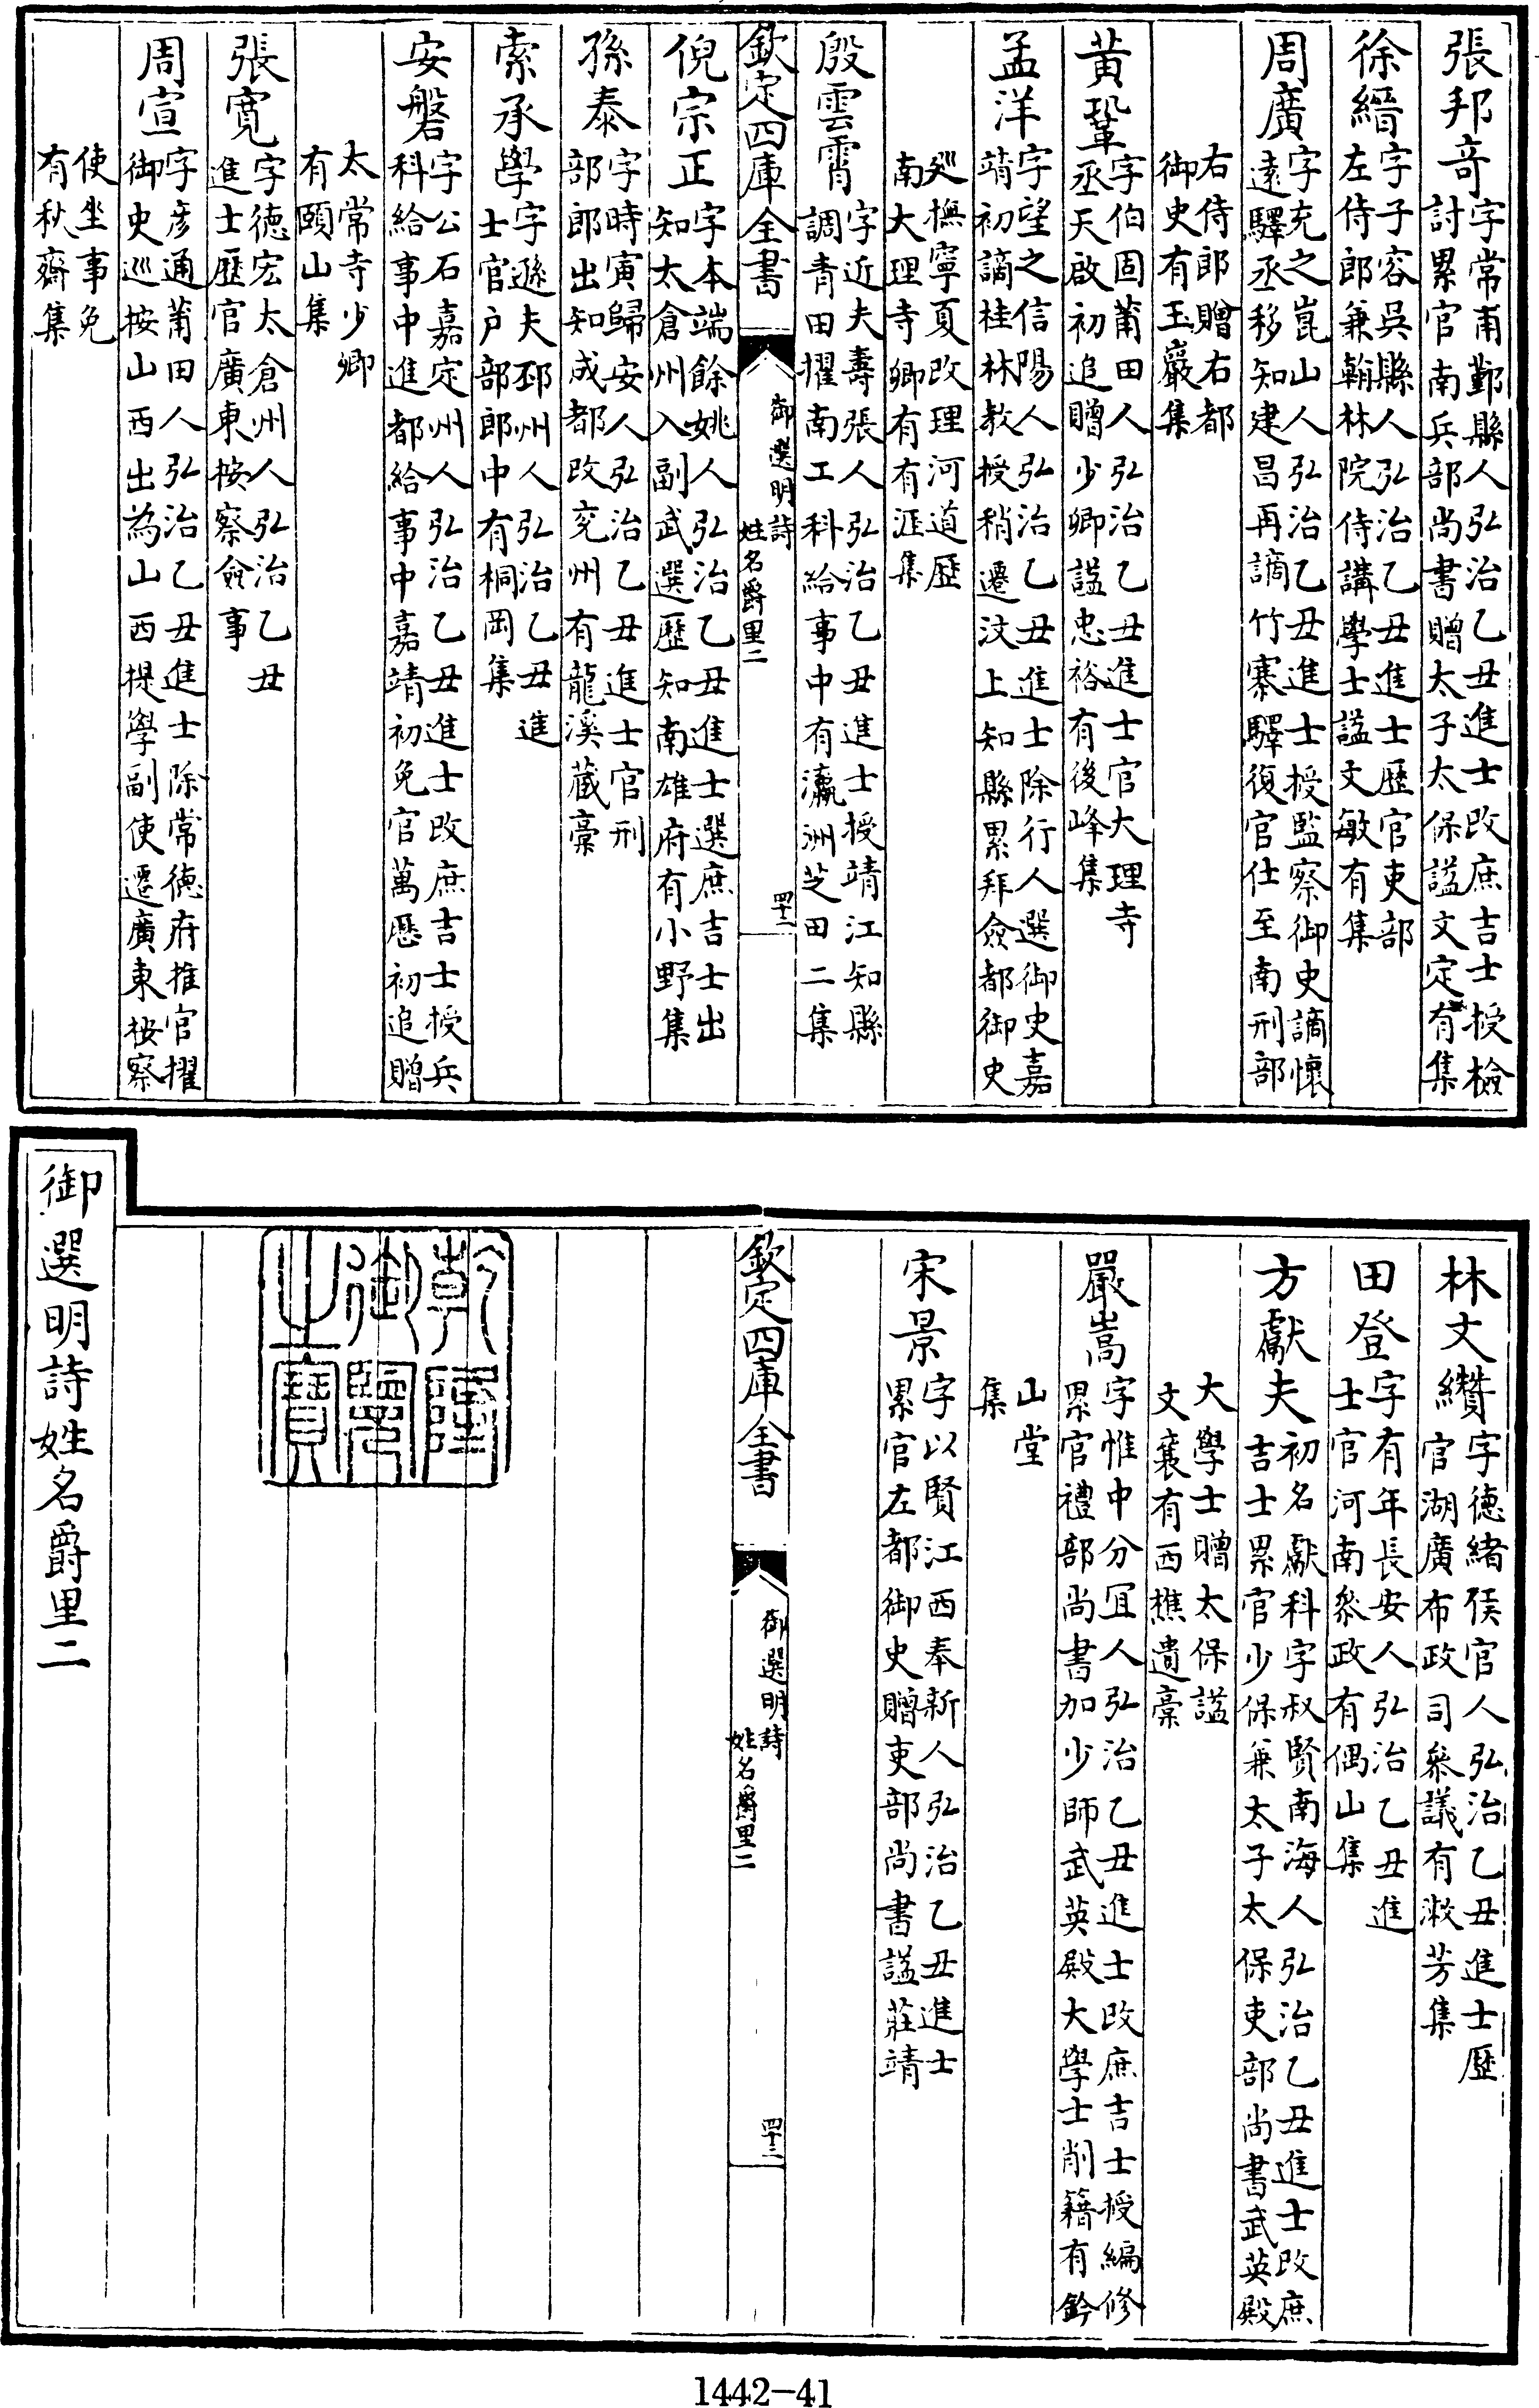 張邦竒字常甫鄞縣人弘治乙丑進士改庶吉士授檢
討累官南兵部尚書贈太子太保諡文定有集
徐縉字子容吳縣人弘治乙丑進士歷官吏部
左侍郎兼翰林院侍講學士諡文敏有集
周廣字充之崑山人弘治乙丑進士授監察御史謫懷
遠驛丞移知建昌再謫竹寨驛復官仕至南刑部
右侍郎贈右都
御史有玉巖集
黃鞏字伯固莆田人弘治乙丑進士官大理寺
丞天啟初追贈少卿諡忠裕有後峰集
孟洋字望之信陽人弘治乙丑進士除行人選御史嘉
靖初謫桂林教授稍遷汶上知縣累拜僉都御史
廵撫寧夏改理河道歷
南大理寺卿有有涯集
殷雲霄字近夫壽張人弘治乙丑進士授靖江知縣
調青田擢南工科給事中有瀛洲芝田二集
欽定四庫全書
御選明詩
姓名爵里二
四十二
倪宗正字本端餘姚人弘治乙丑進士選庶吉士出
知太倉州入副武選歷知南雄府有小野集
孫泰字時寅歸安人弘治乙丑進士官刑
部郎出知成都改兗州有龍溪蔵稾
索承學字遜夫邳州人弘治乙丑進
士官戶部郎中有桐岡集
安磐字公石嘉定州人弘治乙丑進士改庶吉士授兵
科給事中進都給事中嘉靖初免官萬厯初追贈
太常寺少卿
有頤山集
張寛字德宏太倉州人弘治乙丑
進士歷官廣東按察僉事
周宣字彥通莆田人弘治乙丑進士除常德府推官擢
御史巡按山西出為山西提學副使遷廣東按察
使坐事免
有秋齋集
林文纘字德緒侯官人弘治乙丑進士歷
官湖廣布政司叅議有漱芳集
田登字有年長安人弘治乙丑進
士官河南叅政有偶山集
方獻夫初名獻科字叔賢南海人弘治乙丑進士改庶
吉士累官少保兼太子太保吏部尚書武英殿
大學士贈太保諡
文襄有西樵遺稾
嚴嵩字惟中分宜人弘治乙丑進士改庶吉士授編修
累官禮部尚書加少師武英殿大學士削籍有鈐
山堂
集
宋景字以賢江西奉新人弘治乙丑進士
累官左都御史贈吏部尚書諡莊靖
欽定四庫全書
御選明詩
姓名爵里二
四十二
乾隆
御覽
之寶
御選明詩姓名爵里二
1442-41